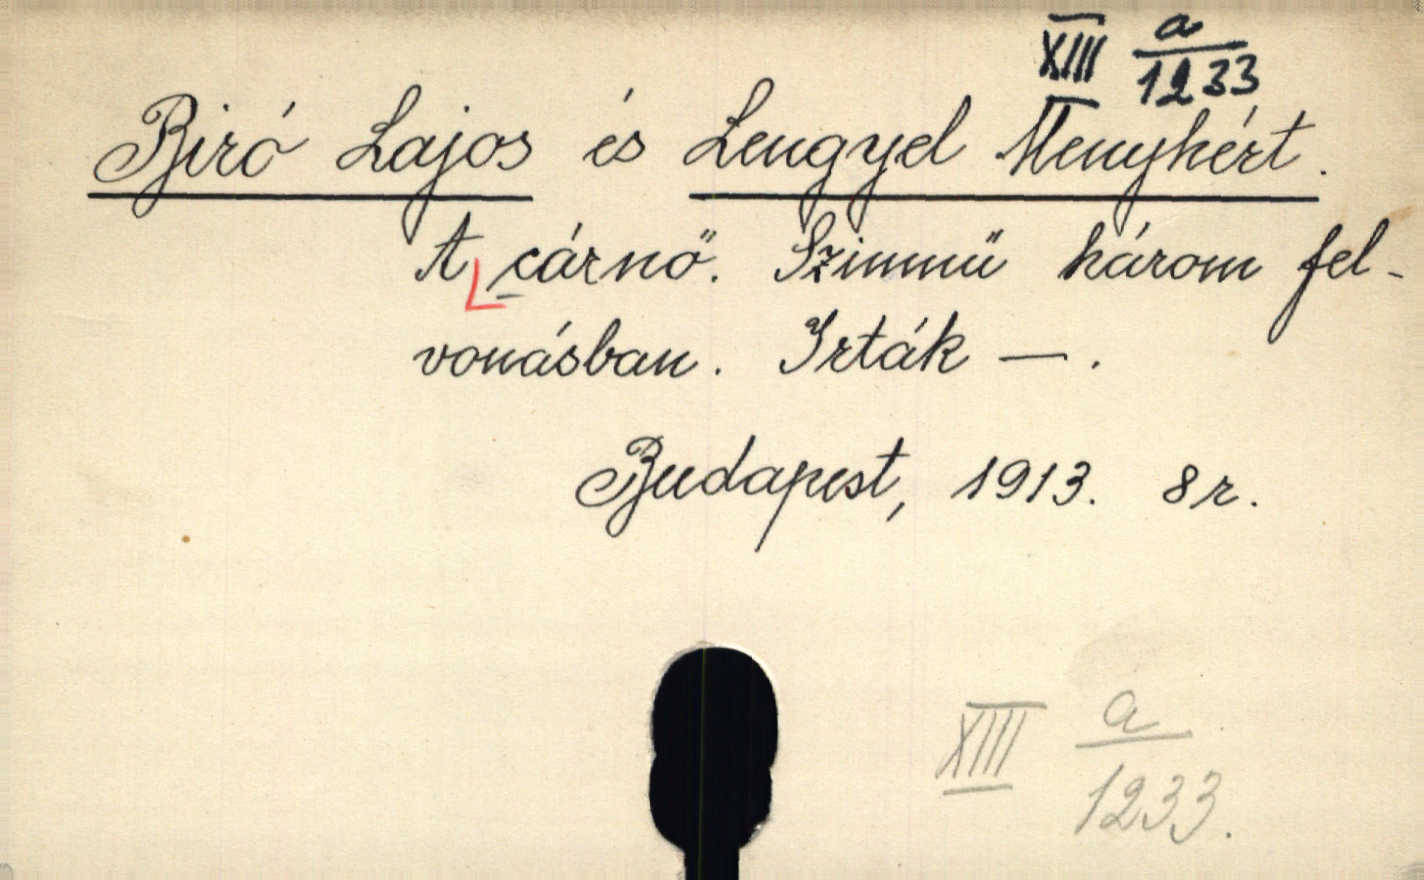 XIII a/1233
Biró Lajos és Lengyel Menyhért.
A cárnő. Szinmű három fel-
vonásban. Irták — .
Budapest, 1913. 8r.
XIII a/1233.